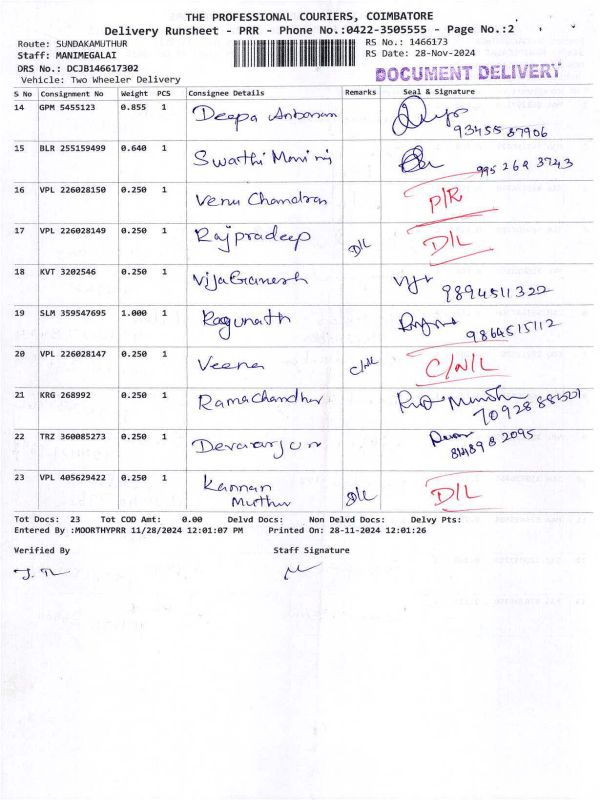 THE PROFESSIONAL COURIERS, COIMBATORE
Delivery Runsheet - PRR - Phone No.:0422-3505555 - Page No.:2
Route: SUNDAKAMUTHUR RS No.: 1466173
Staff: MANIMEGALAI RS Date: 28-Nov-2024
DRS No.: DCJB146617302
Vehicle: Two Wheeler Delivery DOCUMENT DELIVERY
S No Consignment No Weight PCS Consignee Details Remarks Seal & Signature
14 GPM 5455123 0.855 1 Deepa
15 BLR 255159499 0.640 1 Swathi 995 268 3743
16 VPL 226028150 0.250 1 Venu Chandran P/R
17 VPL 226028149 0.250 1 Rajpradeep D/L D/L
18 KVT 3202546 0.250 1 VijaGanesh 9894511322
19 SLM 359547695 1.000 1 Ragunath 9864515112
20 VPL 226028147 0.250 1 Veena C/N/L C/N/L
21 KRG 268992 0.250 1 Ramachandhr
22 TRZ 360085273 0.250 1
23 VPL 405629422 0.250 1 Kannan
Muthur D/L D/L
Tot Docs: 23 Tot COD Amt: 0.00 Delvd Docs: Non Delvd Docs: Delvy Pts:
Entered By :MOORTHYPRR 11/28/2024 12:01:07 PM Printed On: 28-11-2024 12:01:26
Verified By Staff Signature